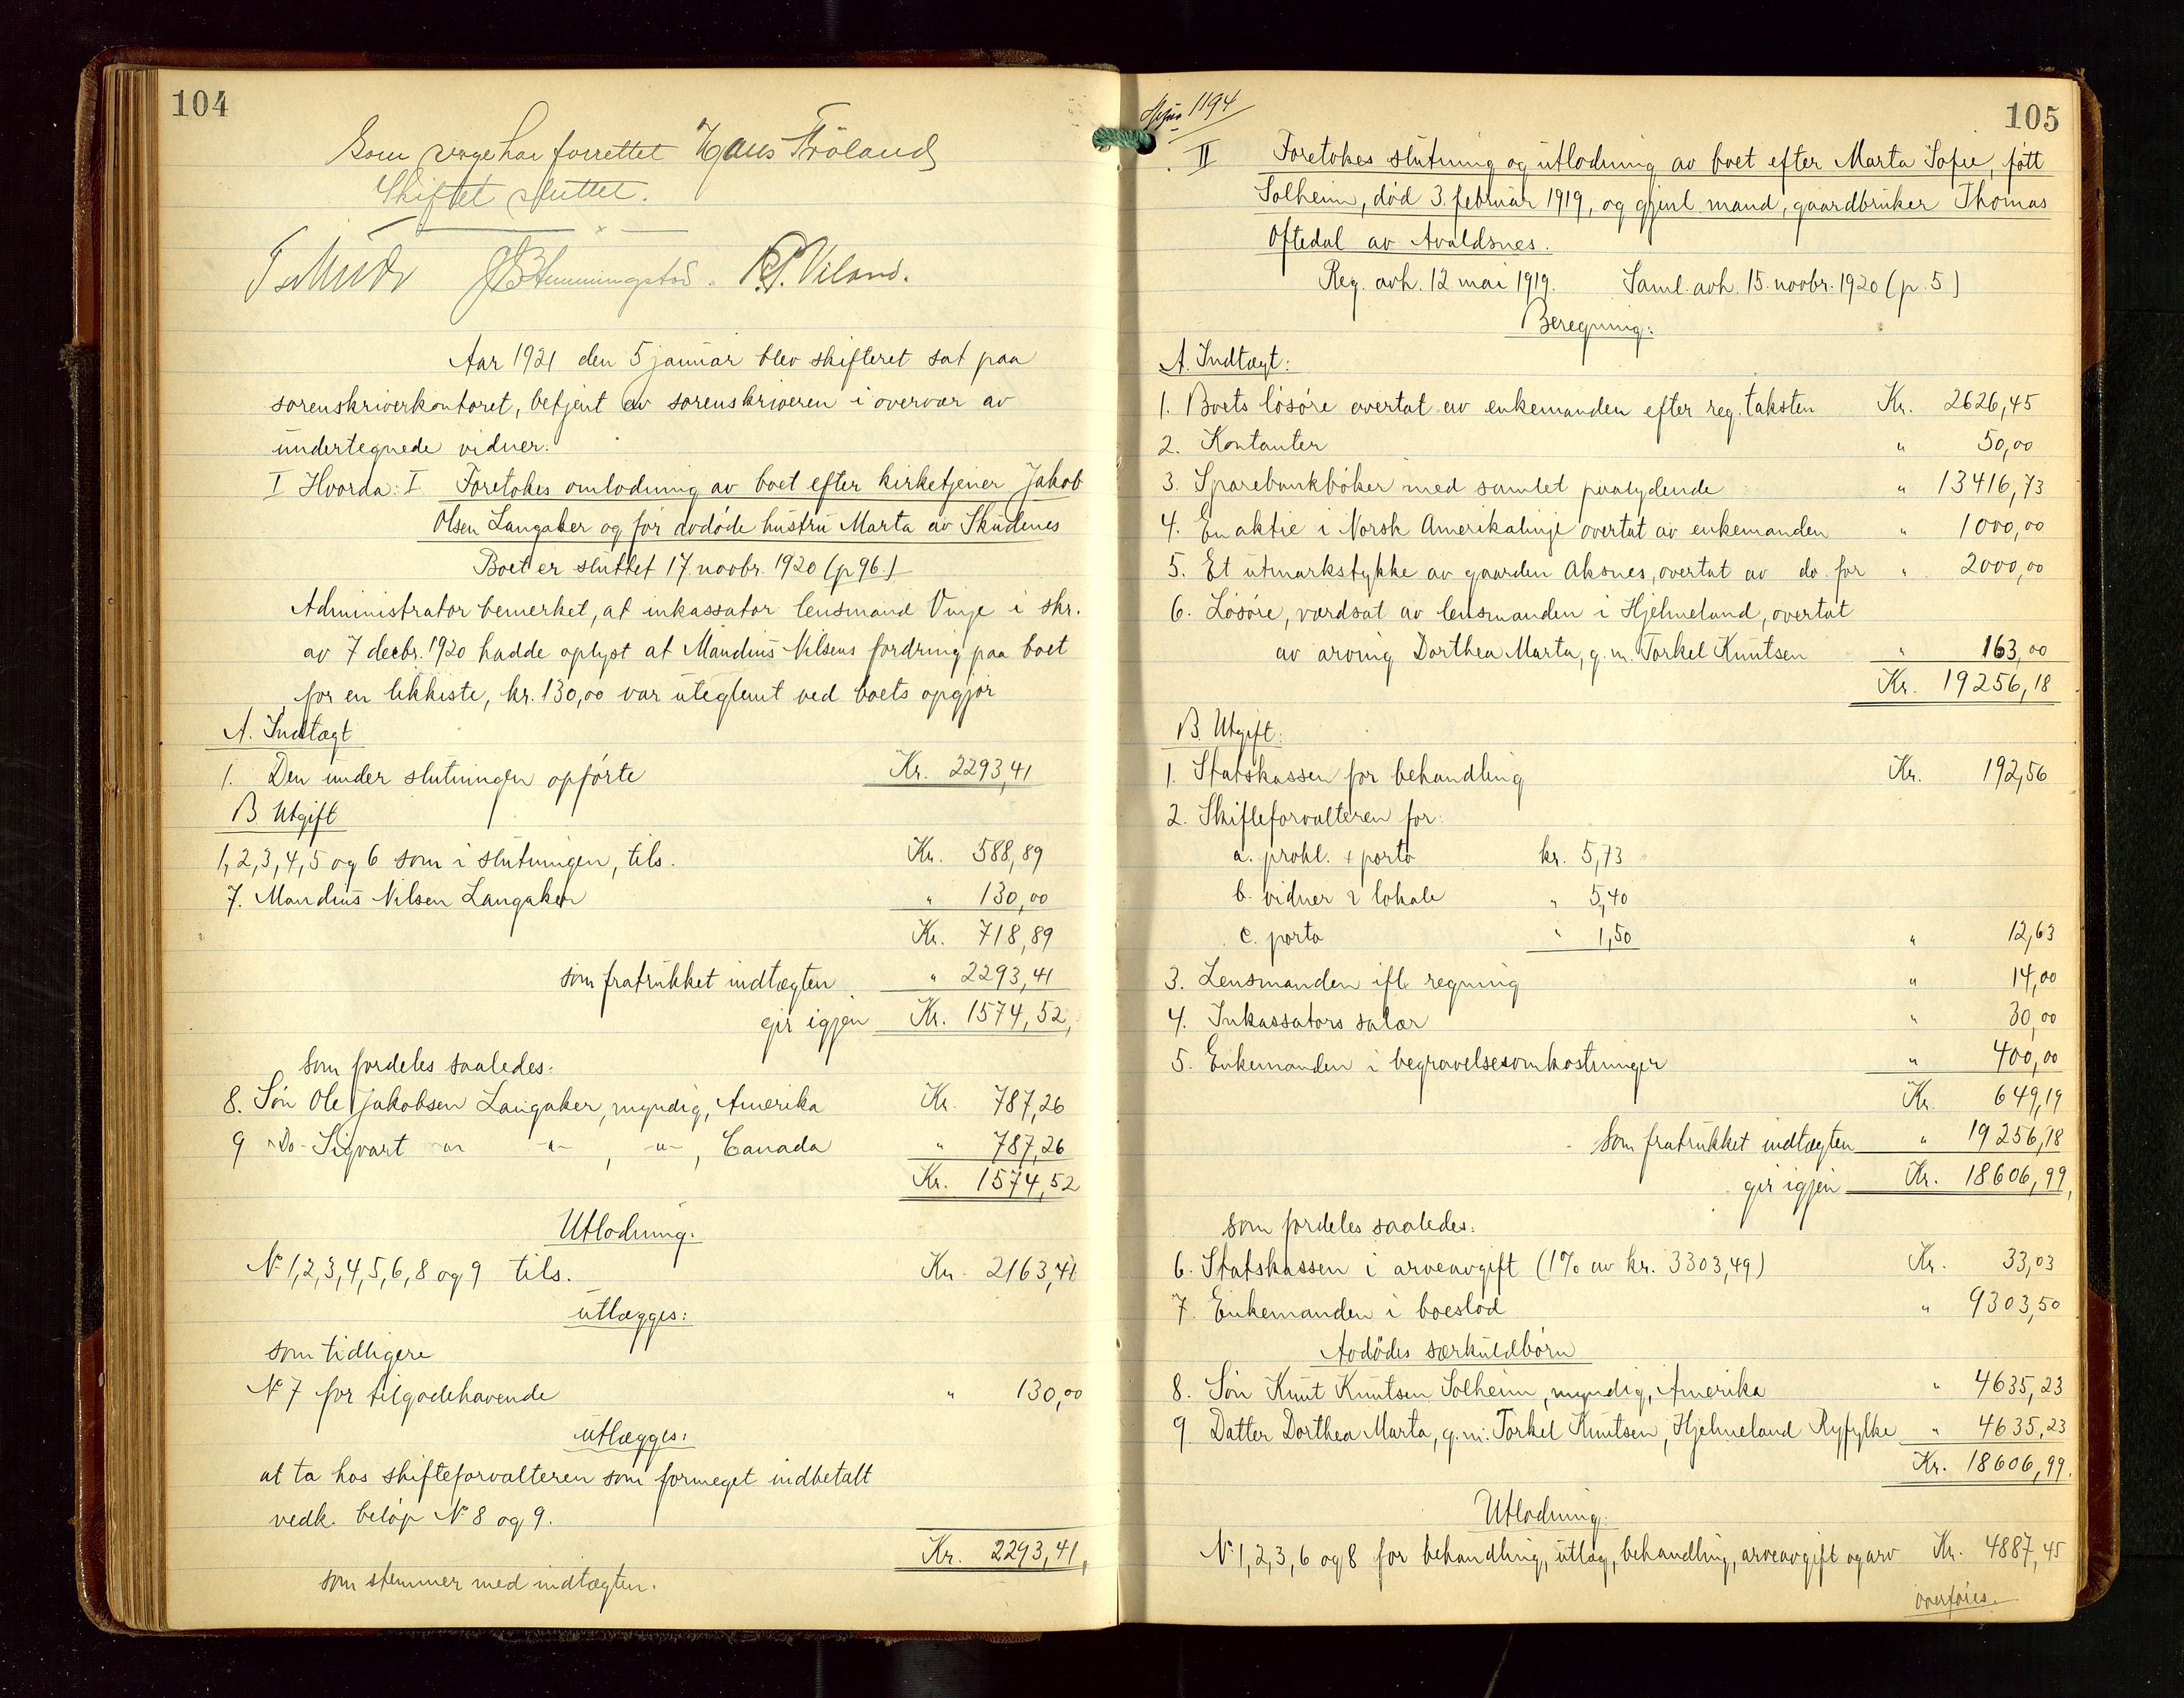 104
Som verge har forrettet Hans Fröland
Skiftet sluttet.
R. S. Viland.
Aar 1921 den 5 januar blev skifteret sat paa
sorenskriverkontoret, betjent av sorenskriveren i overvær av
undertegnede vidner.
I Hvorda: I Foretokes omlodning av boet efter kirketjener Jakob
Olsen Langaker og før avdøde hustru Marta av Skudenes
Boet er sluttet 17. novbr. 1920 (p 96.)
Administrator bemerket, at inkassator lensmand Vinje i skr.
av 7 decbr. 1920 hadde oplyst at Mandius Nilsens fordring paa boet
for en likkiste, kr. 130,00 var uteglemt ved boets opgjør
A. Indtægt
1. Den under slutningen opførte Kr. 2293,41
B. Utgift
1, 2, 3, 4, 5 og 6 som i slutningen, tils. Kr. 588,89
7. Mandius Nilsen Langaker " 130,00
Kr. 718,89
som fratrukket indtægten " 2293,41
gir igjen Kr. 1574,52,
som fordeles saaledes:
8. Søn Ole Jakobsen Langaker, myndig, Amerika Kr. 787,26
9 -Do- Sigvart -"- -"- , -"- , Canada " 787,26
Kr. 1574,52
Utlodning.
No 1, 2, 3, 4, 5, 6, 8 og 9 tils. Kr. 2163,41
utlægges:
som tidligere
No 7 for tilgodehavende " 130,00
utlægges:
at ta hos skifteforvalteren som formeget indbetalt
vedk. beløp No 8 og 9.
Kr. 2293,41,
som stemmer med indtægten.
105
1194
II Foretokes slutning og utlodning av boet efter Marta Sofie, født
Solheim, død 3. februar 1919, og gjenl. mand, gaardbruker Thomas
Oftedal av Avaldsnes.
Reg. avh. 12 mai 1919. Saml. avh. 15. novbr. 1920 (p. 5)
Beregning:
A. Indtægt:
1. Boets løsøre overtat av enkemanden efter reg. taksten Kr. 2626,45
2. Kontanter " 50,00
3. Sparebankbøker med samlet paalydende " 13416,73
4. En aktie i Norsk Amerikalinje overtat av enkemanden " 1000,00
5. Et utmarkstykke av gaarden Aksnes, overtat av do. for " 2000,00
6. Løsøre, værdsat av lensmanden i Hjelmeland, overtat
av arving Dorthea Marta, g. m. Torkel Knutsen " 163,00
Kr. 19256,18
B. Utgift:
1. Statskassen for behandling Kr. 192,56
2. Skifteforvalteren for:
a. prokl. + porto kr. 5,73
b. vidner & lokale " 5,40
c. porto " 1,50 " 12,63
3. Lensmanden ifl. regning " 14,00
4. Inkassators salær " 30,00
5. Enkemanden i begravelsesomkostninger " 400,00
Kr. 649,19
som fratrukket indtægten " 19256,18
gir igjen Kr. 18606,99,
som fordeles saaledes:
6. Statskassen i arveavgift (1% av kr. 3303,49) Kr. 33,03
7. Enkemanden i boeslod " 9303,50
Avdødes særkuldbørn
8. Søn Knut Knutsen Solheim, myndig, Amerika " 4635,23
9 Datter Dorthea Marta, g. m. Torkel Knutsen, Hjelmeland Ryfylke " 4635,23
Kr. 18606,99.
Utlodning:
No 1, 2, 3, 6 og 8 for behandling, utlæg, behandling, arveavgift og arv Kr. 4887,45
overføres.